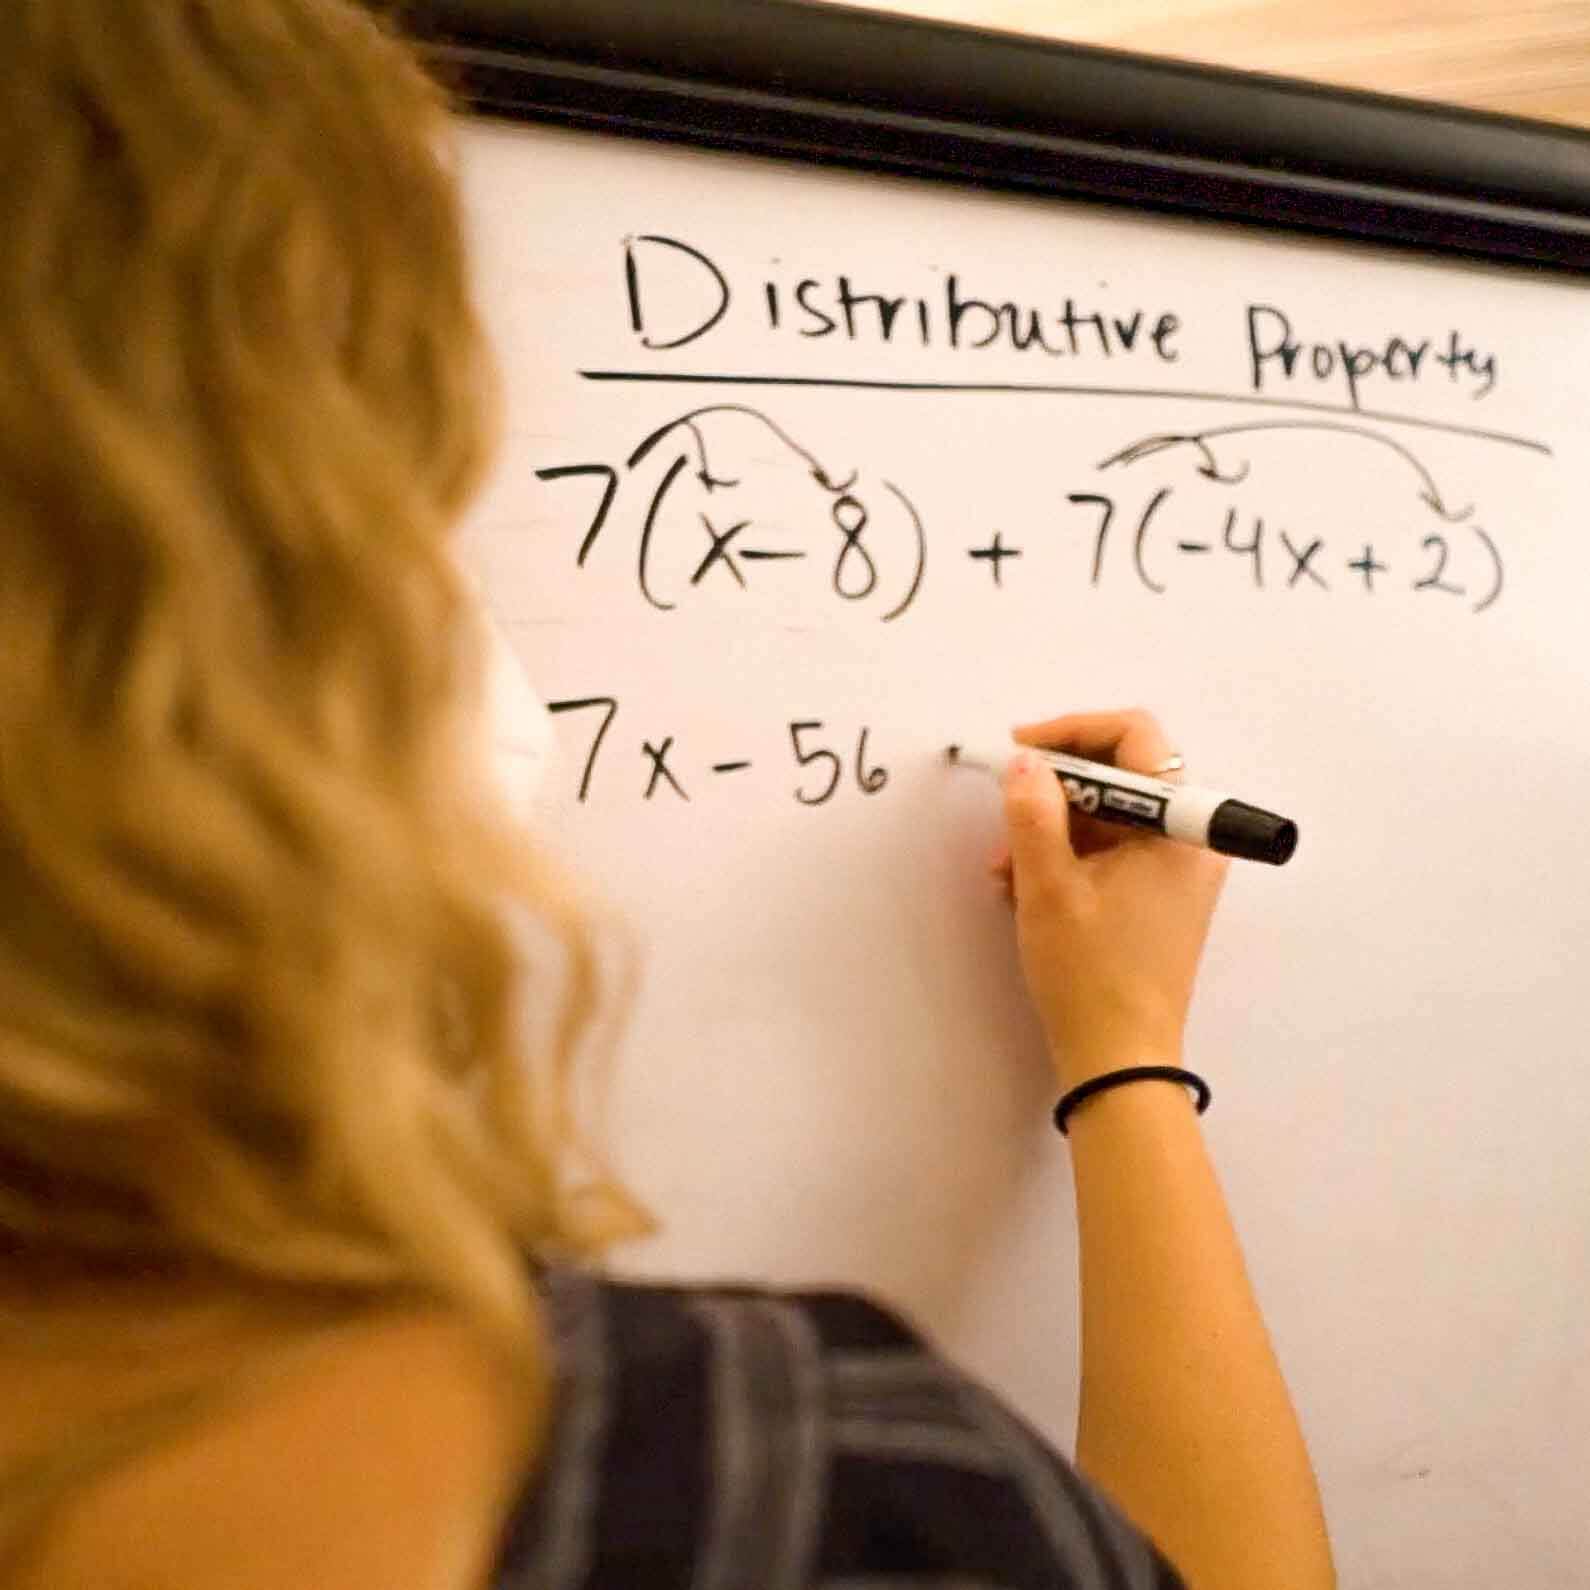 Distributive Property
7(x-8) + 7(-4x+2)
7x - 56